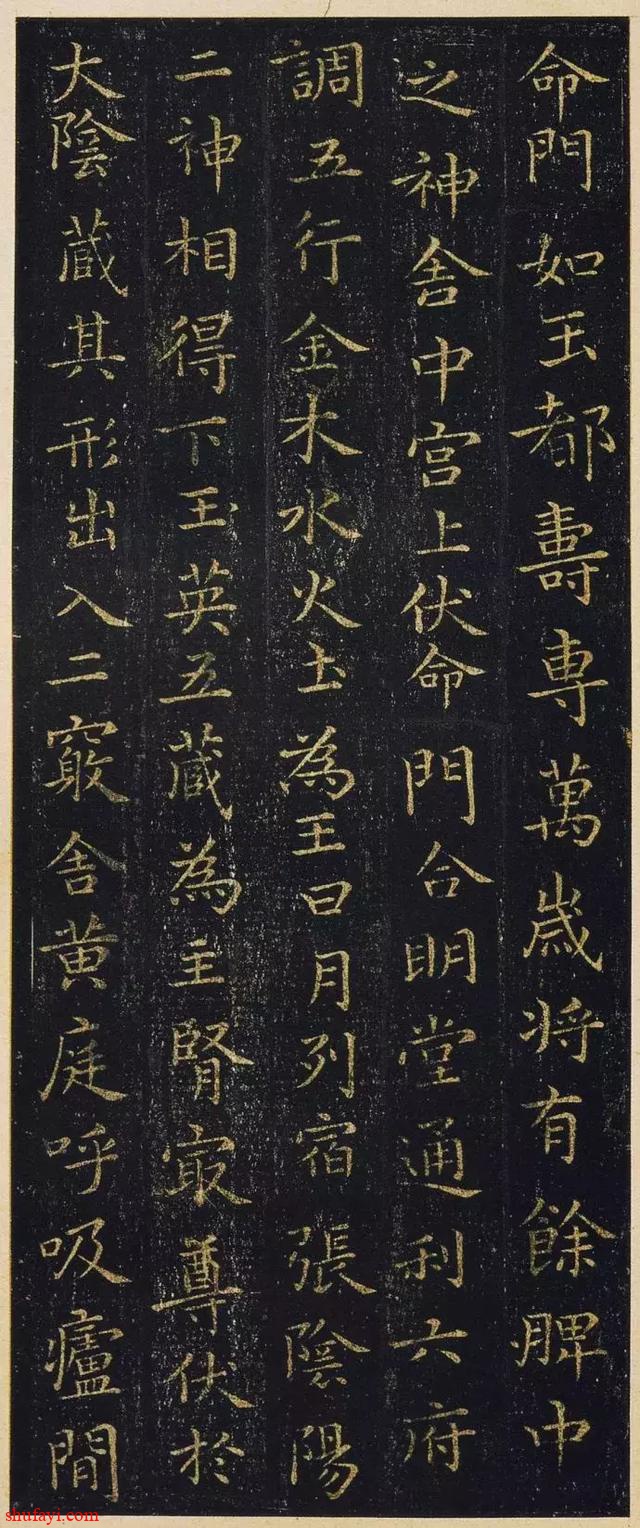 命門如玉都壽專萬歲将有餘脾中
之神舍中宫上伏命門合明堂通利六府
調五行金木水火土為王日月列宿張陰陽
二神相得下玉英五藏為主腎㝡尊伏於
大陰藏其形出入二竅舍黄庭呼吸廬間
shufayi.com